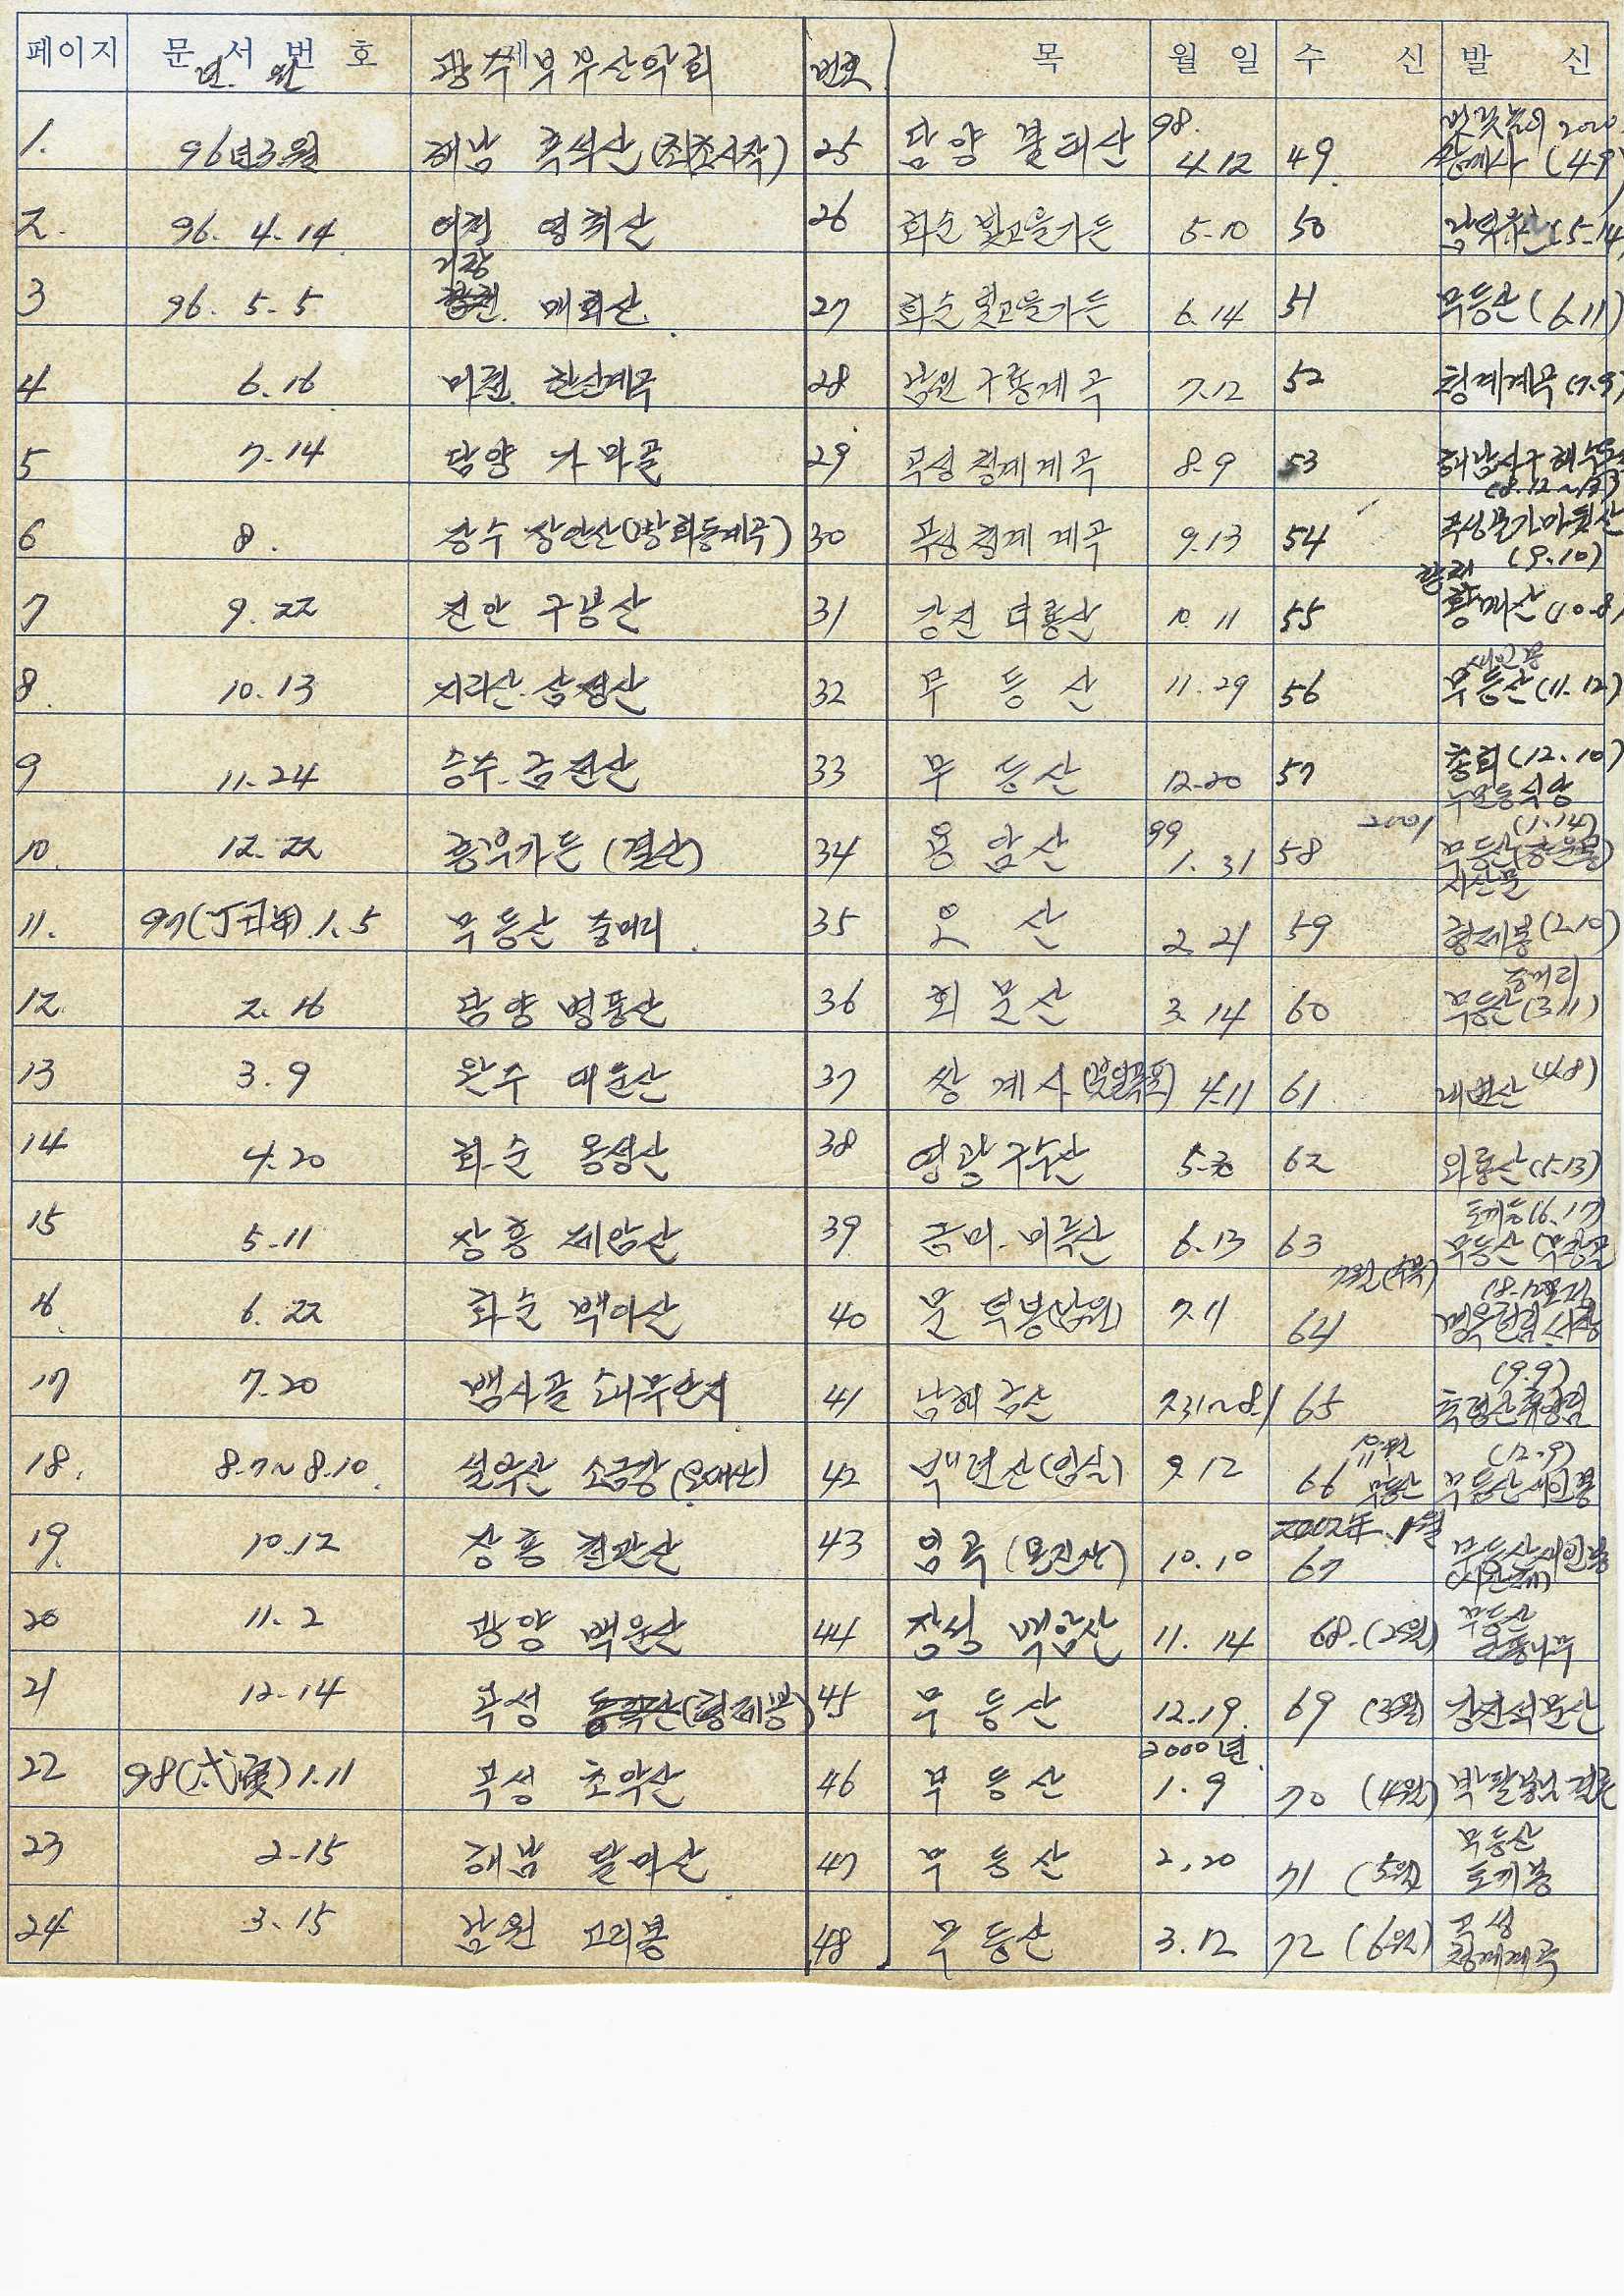 페이지 문서번호 제 목 월일 수신 발신
년. 월 광주부부산악회 번호
1. 96년3월 해남 흑석산 (최초시작) 25 담양 불태산 98. 4.12 49 벚꽃놀이 2000 쌍계사 (4.9)
2. 96. 4. 14 여천 영취산 26 화순 빛고을가든 5.10 50 (5.14)
3 96. 5. 5 거창 매화산 27 화순 빛고을가든 6.14 51 무등산 (6.11)
4 6.16 한신계곡 28 남원 구룡계곡 7.12 52 청계계곡 (7.9)
5 7.14 담양 가마골 29 곡성 청계계곡 8.9 53 해남 (8.12~13)
6 8. 장수 장안산 (방화동계곡) 30 곡성 청계 계곡 9.13 54 곡성 (9.10)
7 9.22 진안 구봉산 31 강진 덕룡산 10. 11 55 황매산 (10.8)
8. 10.13 지리산 삼성산 32 무등산 11.29 56 새인봉 무등산 (11.12)
9 11.24 승주 금전산 33 무등산 12.20 57 총회 (12.10)
10. 12.22 흥부가든 (결산) 34 용암산 99 1. 31 58 2001 (1.14) 무등산
11. 97(丁丑年) 1.5 무등산 중머리 35 오산 2.21 59 형제봉 (2.10)
12 2.16 담양 병풍산 36 회문산 3.14 60 중머리 무등산 (3.11)
13 3.9 완주 대둔산 37 쌍계사 (불일폭포) 4.11 61 내변산 (4.8)
14 4.20 화순 옹성산 38 영광구수산 62 와룡산 (5.13)
15 5.11 장흥 제암산 39 금마 미륵산 6.13 63 토끼등 (6.17) 무등산
16 6.22 화순 백아산 40 문덕봉 (남원) 7.11 64 7월
17 7.20 뱀사골 41 남해 금산 7.31~8.1 65 (9.9) 축령산휴양림
18. 8.7~8.10 설악산 소금강 (오대산) 42 백련산 (임실) 9.12 66 무등산 (12.9) 무등산 새인봉
19. 10.12 장흥 천관산 43 임곡 10.10 67 2002年 1월 무등산 새인봉
20 11.2 광양 백운산 44 장성 백암산 11. 14 68. (2월) 무등산
21 12.14 곡성 (형제봉) 45 무등산 12.19. 69 (3월) 강진석문산
22 98(戊寅) 1.11 곡성 초악산 46 무등산 2000년. 1.9 70 (4월)
23 2.15 해남 달마산 47 무등산 2.20 71 (5월) 무등산 토끼봉
24 3.15 남원 고리봉 48 무등산 3.12 72 (6월) 곡성 청계계곡